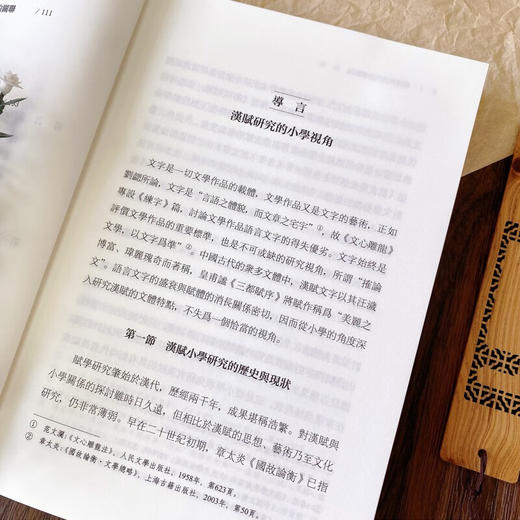 / 111
導 言
漢賦研究的小學視角
文字是一切文學作品的載體，文學作品又是文字的藝術，正如
劉勰所論，文字是“言語之體貌，而文章之宅宇”①，故《文心雕龍》
專設《練字》篇，討論文學作品語言文字的得失優劣。文字始終是
評價文學作品的重要標準，也是不可或缺的研究視角，所謂“推論
文學，以文字爲準”②。中國古代的衆多文體中，漢賦文字以其汪濊
博富、瑋麗瑰奇而著稱，皇甫謐《三都賦序》將賦作稱爲“美麗之
文”。語言文字的盛衰與賦體的消長關係密切，因而從小學的角度深
入研究漢賦的文體特點，不失爲一個恰當的視角。
第一節 漢賦小學研究的歷史與現狀
賦學研究肇始於漢代，歷經兩千年，成果堪稱浩繁。對漢賦與
小學關係的探討雖時日久遠，但相比於漢賦的思想、藝術乃至文化
研究，仍非常薄弱。早在二十世紀初期，章太炎《國故論衡》已指
① 范文瀾：《文心雕龍注》，人民文學出版社，1958年，第623頁。
② 章太炎：《國故論衡·文學總略》，上海古籍出版社，2003年，第50頁。